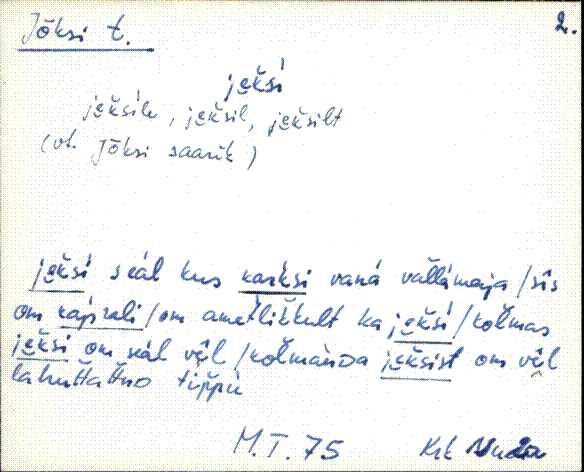 Jõksi t.
2.
jekši
jekšile, jekšil, jekšilt
(vt. Jõksi saarik)
jekši seäl kus karksi vana vallamaja /sis
om kapsali /om ametlikkult ka jekši /kolmas
jekši om seäl vel /kolmanda jekšist om vel
lahutattno tüppü
M.T. 75
Krk